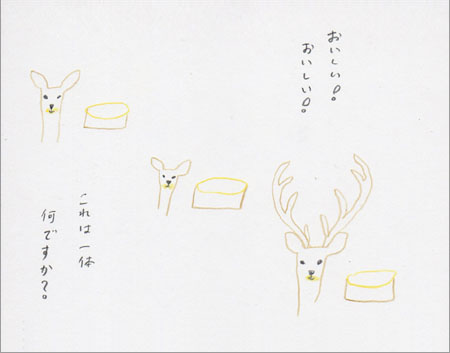 おいしい!。
おいしい!。
これは一体
何ですか?。